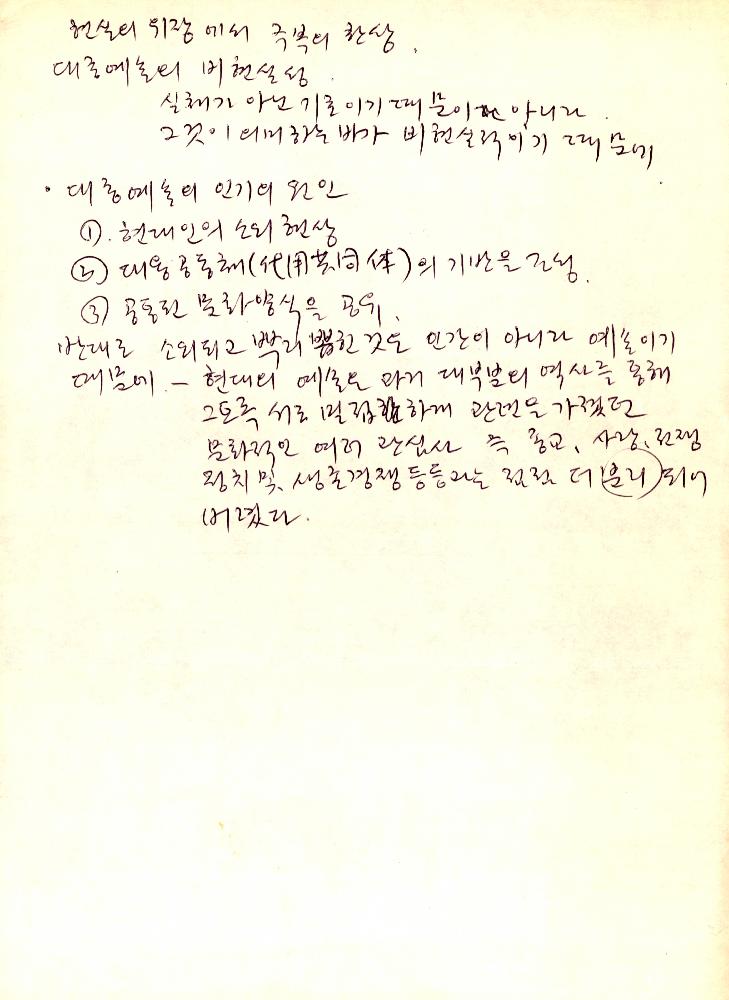 현실의 위장에의 극복의 환상.
대중예술의 비현실성.
실체가 아닌 기호이기 때문이 아니라.
그것이 의미하는 바가 비현실적이기 때문에.
• 대중예술의 인기의 원인
①. 현대인의 소외현상
② 대용공동체(代用共同体)의 기반을 조성.
③ 공통된 문화양식을 공유.
반대로 소외되고 뿌리뽑힌 것은 인간이 아니라 예술이기
때문에. — 현대의 예술은 과거 대부분의 역사를 통해
그토록 서로 밀접하게 관련을 가졌던
문화적인 여러 관심사 즉 종교, 사랑, 전쟁
정치 및, 생존경쟁 등등과는 점점 더 분리되어
버렸다.